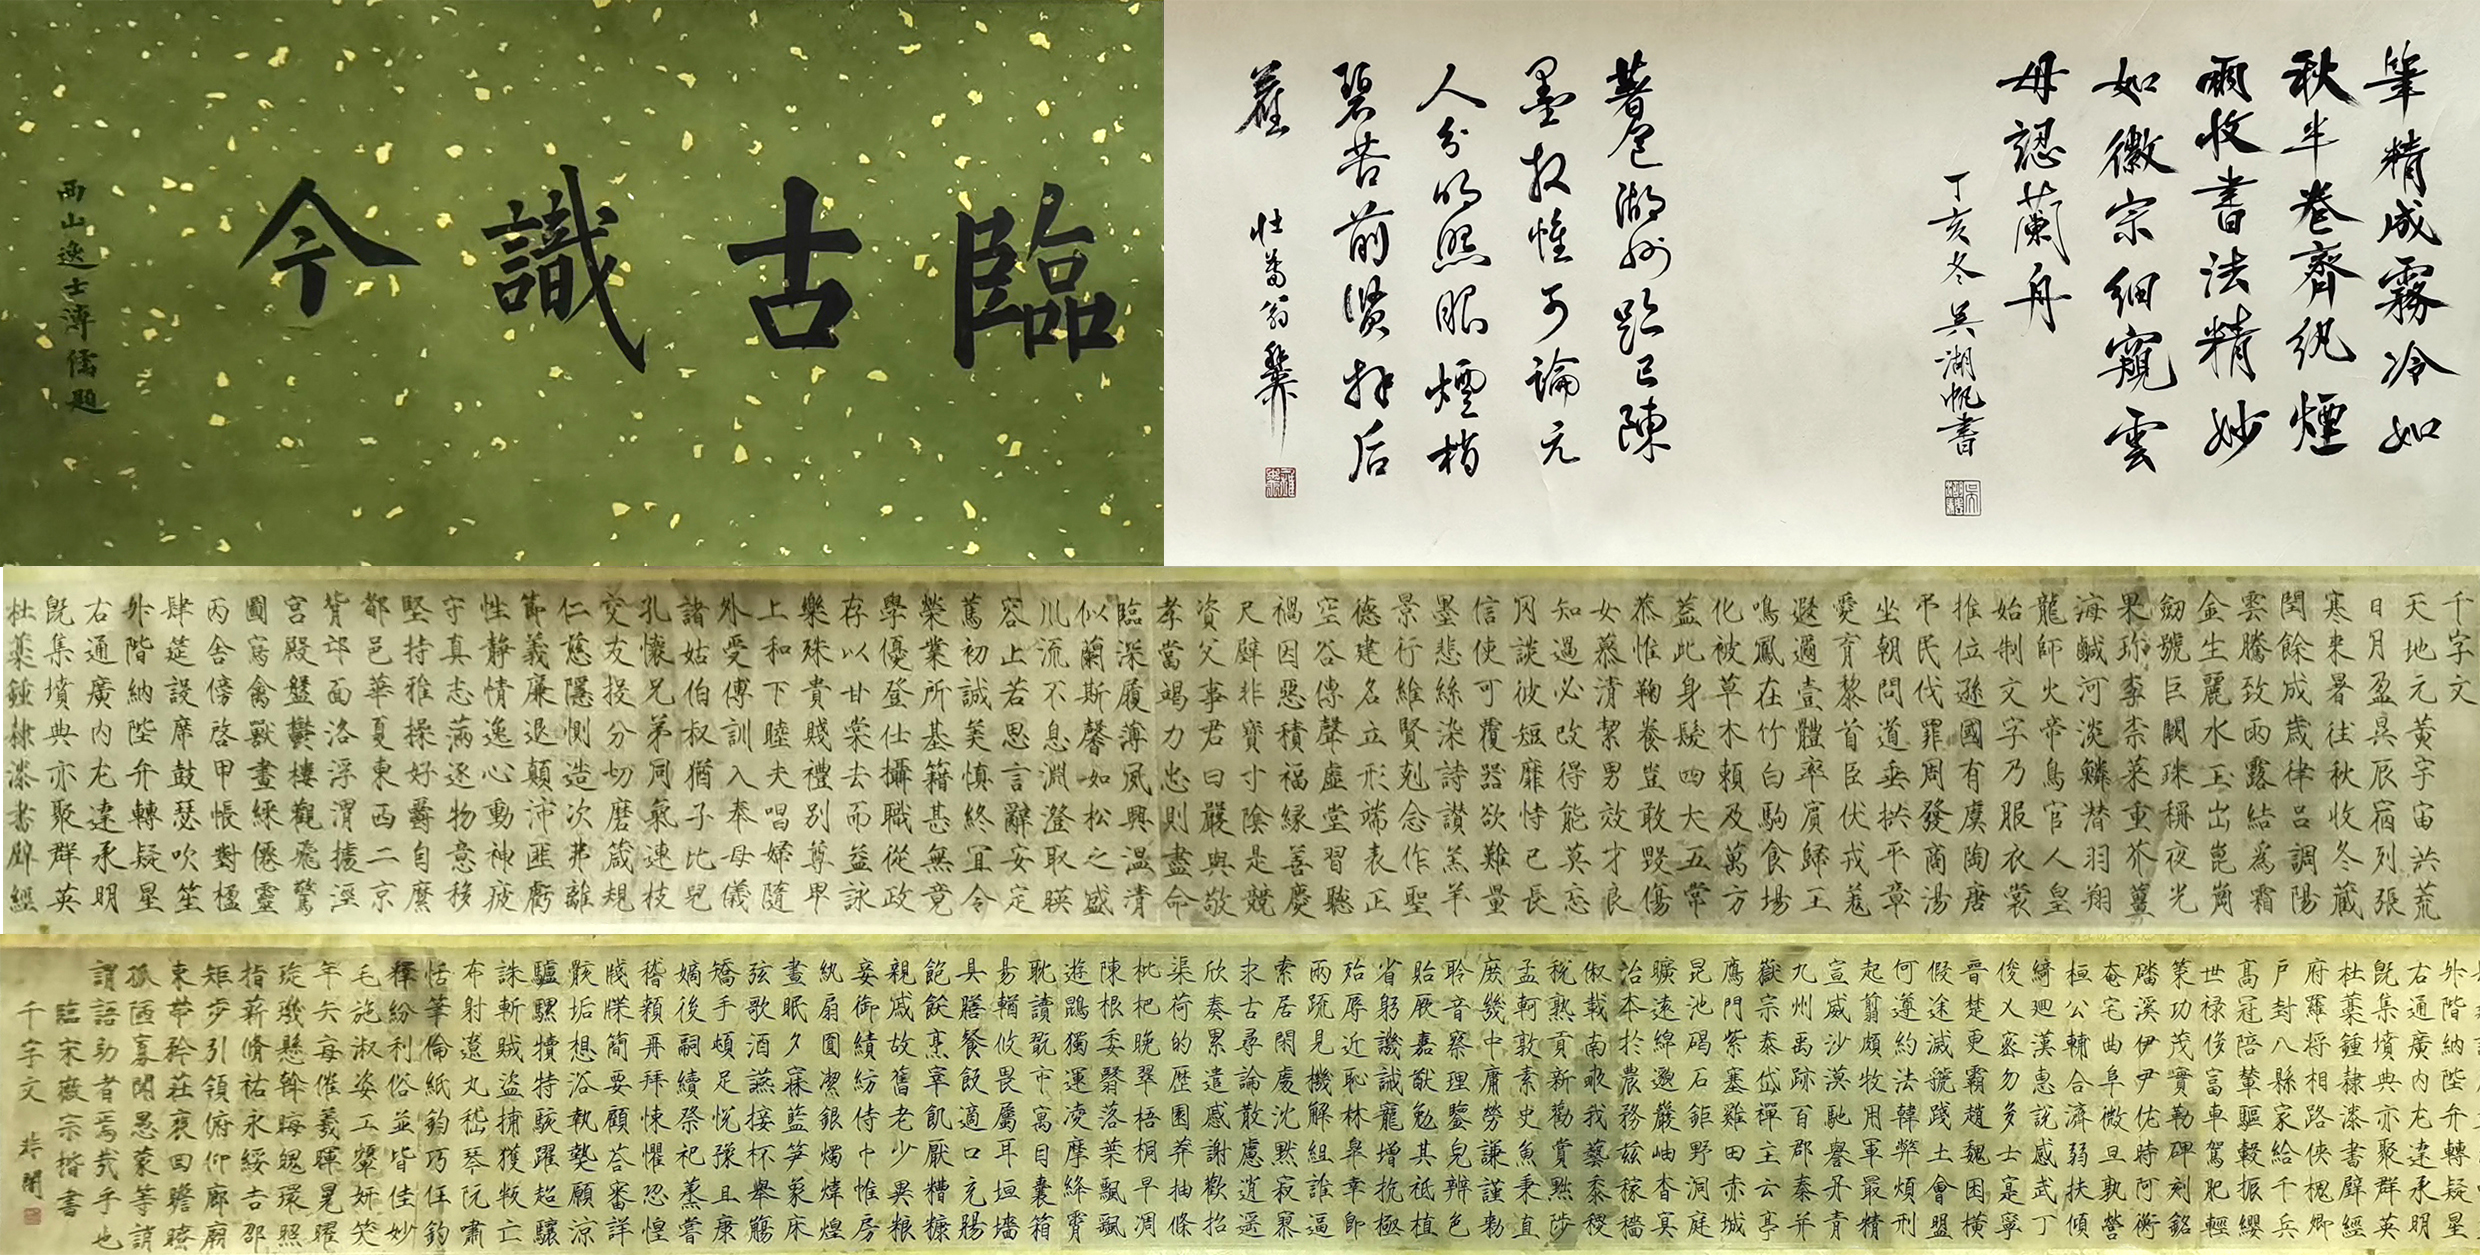 臨古識今
西山逸士溥儒題
筆精成霧冷如
秋半卷齊紈煙
雨收書法精妙
如徽宗細窺雲
母認蘭舟
丁亥冬吳湖帆書
暮色湖州跡已陳
墨救惟可論元
人分明照眼煙梢
碧苦前賢拜后
塵
壯暮翁
千字文
天地元黃宇宙洪荒
日月盈昃辰宿列張
寒来暑往秋收冬藏
閏餘成歲律呂調陽
雲騰致雨露結爲霜
金生麗水玉出崑崗
劒號巨闕珠稱夜光
果珎李柰菜重芥薑
海鹹河淡鱗潜羽翔
龍師火帝鳥官人皇
始制文字乃服衣裳
推位遜國有虞陶唐
弔民伐罪周發商湯
坐朝問道垂拱平章
愛育黎首臣伏戎羌
遐邇壹體率賓歸王
鳴鳳在竹白駒食場
化被草木賴及萬方
蓋此身髮四大五常
恭惟鞠養豈敢毀傷
女慕清絜男效才良
知過必改得能莫忘
罔談彼短靡恃已長
信使可覆器欲難量
墨悲絲染詩讃羔羊
景行維賢剋念作聖
德建名立形端表正
空谷傳聲虛堂習聽
禍因惡積福緣善慶
尺璧非寶寸陰是競
資父事君曰嚴與敬
孝當竭力忠則盡命
臨深履薄夙興溫清
似蘭斯馨如松之盛
川流不息淵澄取暎
容止若思言辭安定
篤初誠美慎終宜令
榮業所基籍甚無竟
學優登仕攝職從政
存以甘棠去而益詠
樂殊貴賤禮別尊卑
上和下睦夫唱婦隨
外受傅訓入奉母儀
諸姑伯叔猶子比兒
孔懷兄弟同氣連枝
交友投分切磨箴規
仁慈隱惻造次弗離
節義廉退顛沛匪虧
性靜情逸心動神疲
守真志滿逐物意移
堅持雅操好爵自縻
都邑華夏東西二京
背邙面洛浮渭據涇
宮殿盤鬱樓觀飛驚
圖寫禽獸畫綵僊靈
丙舍傍啓甲帳對楹
肆筵設席鼓瑟吹笙
升階納陛弁轉疑星
右通廣內左達承明
既集墳典亦聚群英
杜藁鍾隸漆書壁經
升階納陛弁轉疑星
右通廣內左達承明
既集墳典亦聚群英
杜藁鍾隸漆書壁經
府羅將相路俠槐卿
戶封八縣家給千兵
高冠陪輦驅轂振纓
世祿侈富車駕肥輕
策功茂實勒碑刻銘
磻溪伊尹佐時阿衡
奄宅曲阜微旦孰營
桓公輔合濟弱扶傾
綺迴漢惠說感武丁
俊乂密勿多士寔寧
晉楚更霸趙魏困橫
假途滅虢踐土會盟
何遵約法韓弊煩刑
起翦頗牧用軍最精
宣威沙漠馳譽丹青
九州禹跡百郡秦并
嶽宗泰岱禪主云亭
鴈門紫塞雞田赤城
昆池碣石鉅野洞庭
曠遠綿邈巖岫杳冥
治本於農務茲稼穡
俶載南畝我藝黍稷
稅熟貢新勸賞黜陟
孟軻敦素史魚秉直
庶幾中庸勞謙謹勑
聆音察理鑒皃辨色
貽厥嘉猷勉其祗植
省躬譏誡寵增抗極
殆辱近恥林皋幸即
兩疏見機解組誰逼
索居閑處沈默寂寥
求古尋論散慮逍遥
欣奏累遣慼謝歡招
渠荷的歷園莽抽條
枇杷晚翠梧桐早凋
陳根委翳落葉飄颻
遊鵾獨運凌摩絳霄
耽讀翫市寓目囊箱
易輶攸畏屬耳垣墻
具膳餐飯適口充腸
飽飫烹宰飢厭糟糠
親戚故舊老少異糧
妾御績紡侍巾帷房
紈扇圓潔銀燭煒煌
晝眠夕寐藍笋象床
弦歌酒讌接杯舉觴
矯手頓足悅豫且康
嫡後嗣續祭祀蒸嘗
稽顙再拜悚懼恐惶
牋牒簡要顧荅審詳
骸垢想浴執熱願涼
驢騾犢特駭躍超驤
誅斬賊盜捕獲叛亡
布射遼丸嵇琴阮嘯
恬筆倫紙鈞巧任釣
釋紛利俗並皆佳妙
毛施淑姿工顰妍笑
年矢每催羲暉晃曜
琁璣懸斡晦魄環照
指薪脩祜永綏吉邵
矩步引領俯仰廊廟
束帶矜莊裴回瞻眺
孤陋寡聞愚蒙等誚
謂語助者焉哉乎也
臨宋徽宗楷書
千字文